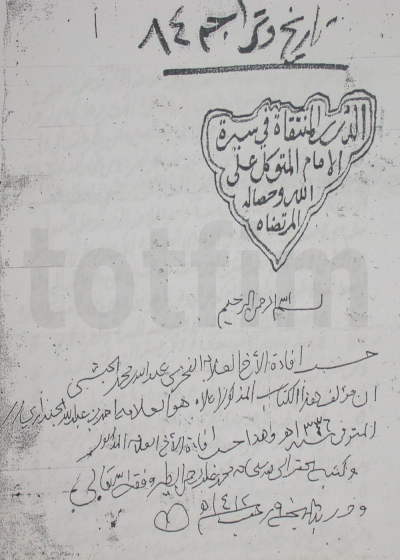 تاريخ وتراجم ٨٤
الدرر المنتقاة في سيرة
الإمام المتوكل على
الله وخصاله
المرتضاه
بسم الله الرحمن الرحيم
حسب افادة الأخ العلامة الفخري عبدالله محمد الحبشي
ان مؤلف هذا الكتاب المذكور اعلاه هو العلامة احمد بن عبدالله الجنداري
المتوفى سنة ١٣٣٦ هـ وهذا حسب افادة الأخ العلامة المذكور
وكتب وفقه الله تعالى
رجب ١٤١٢ هـ
totfim